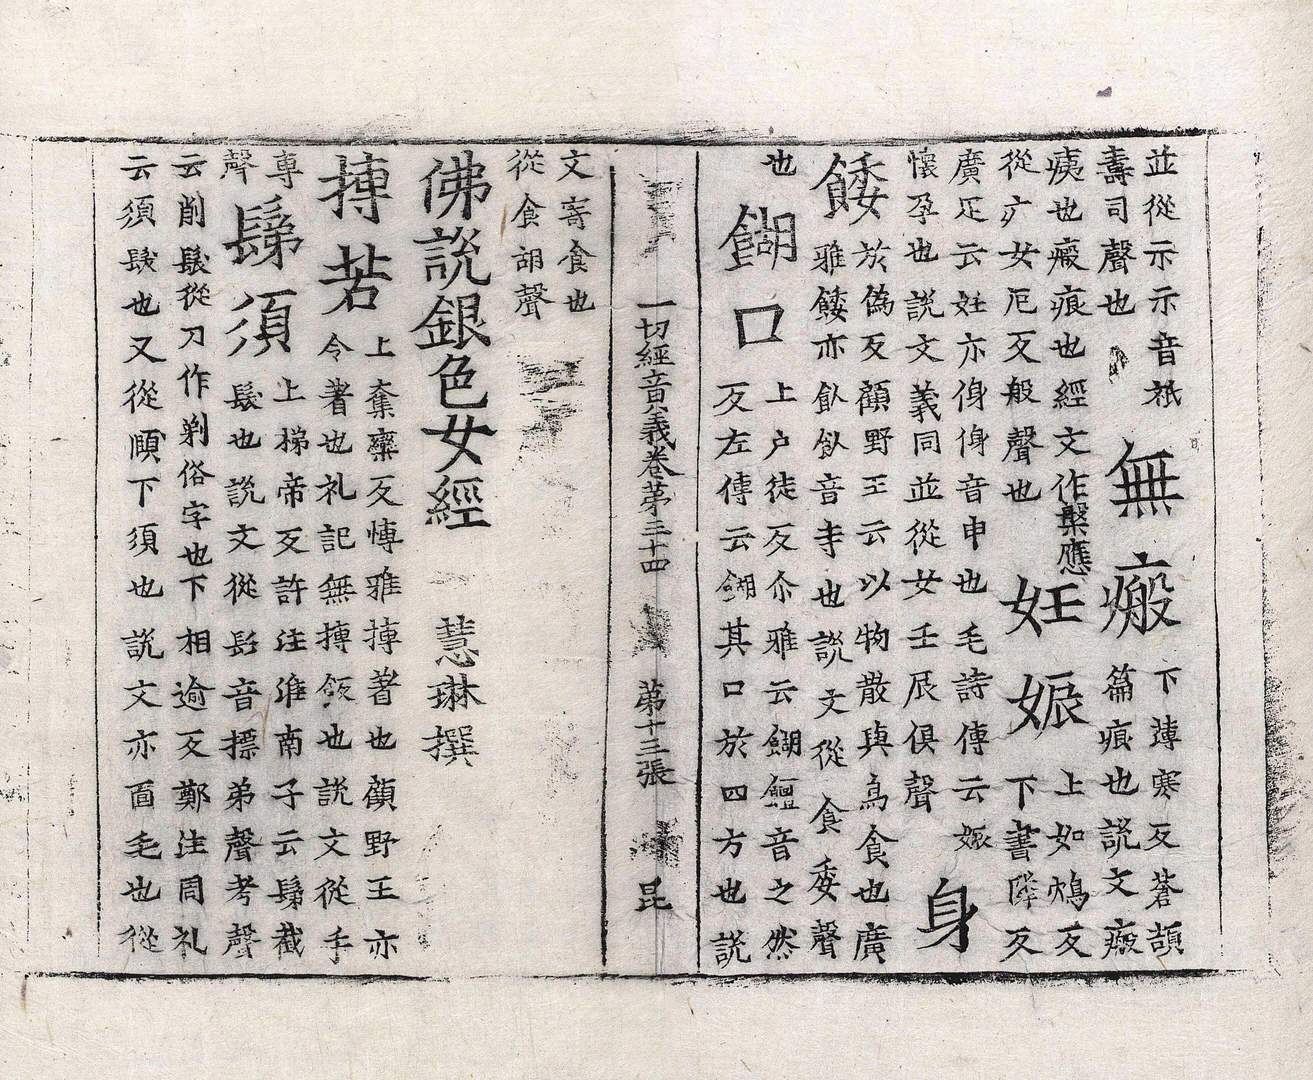 並從示示音祇
壽司聲也
無瘢
下薄寒反蒼頡
篇痕也說文瘢
痍也瘢痕也經文作槃應
從疒女厄反般聲也
妊娠
上如鴆反
下書隣反
廣疋云妊亦身身音申也毛詩傳云娠
懷孕也說文義同並從女壬辰俱聲
身
也
餧
於僞反顧野王云以物散與鳥食也廣
雅餧亦飤飤音寺也說文從食委聲
餬口
上户徒反尒雅云餬饘音之然
反左傳云餬其口於四方也說
文寄食也
從食胡聲
一切經音義卷第三十四 第十三張 昆
佛說銀色女經 慧琳撰
摶若
上奪欒反慱雅摶著也顧野王亦
令著也礼記無摶飯也說文從手
專
聲
髴須
上梯帝反許注淮南子云髴截
髮也說文從髟音摽弟聲考聲
云削髮從刀作剃俗字也下相逾反鄭注周礼
云須髮也又從頤下須也說文亦面毛也從